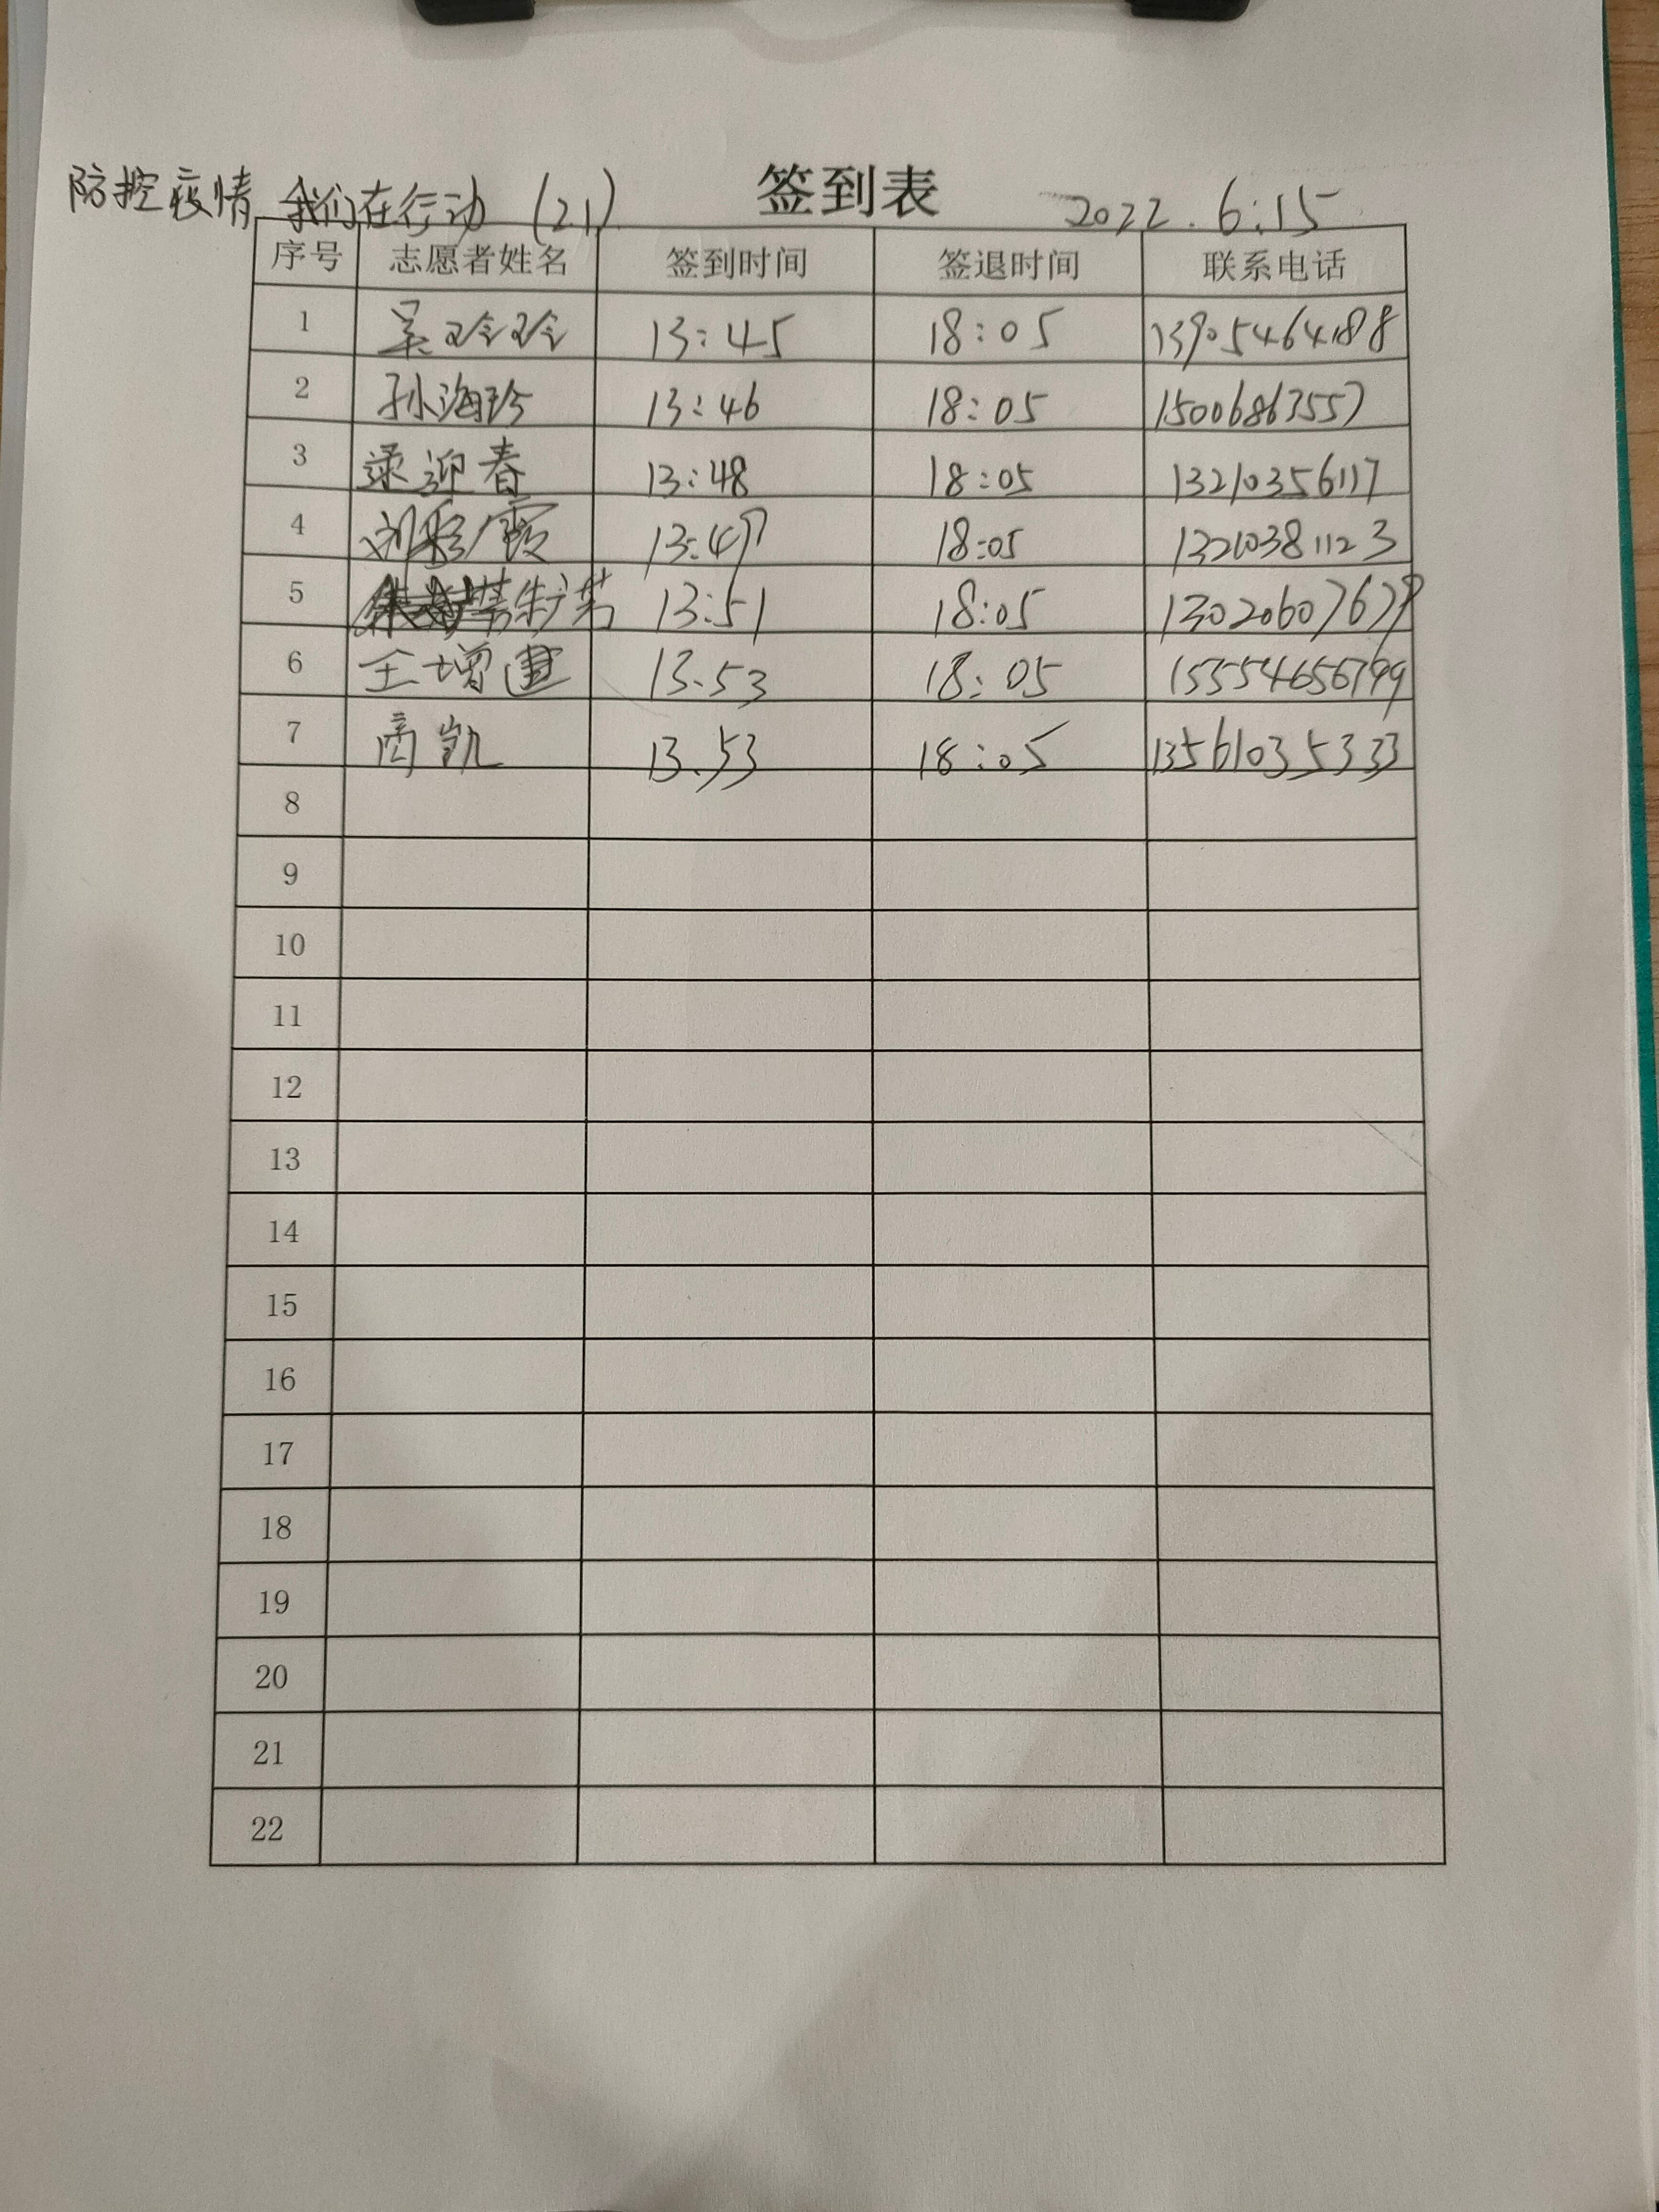 签到表
防控疫情 我们在行动 (21) 2022.6.15
序号 志愿者姓名 签到时间 签退时间 联系电话
1 吴玲玲 13:45 18:05 13905464188
2 孙海珍 13:46 18:05 15006863557
3 迎春 13:48 18:05 13210356117
4 刘彩霞 13:49 18:05 13210381123
5 13:51 18:05 13020607679
6 王增建 13.53 18:05
7 商凯 13.53 18:05 13561035333
8
9
10
11
12
13
14
15
16
17
18
19
20
21
22